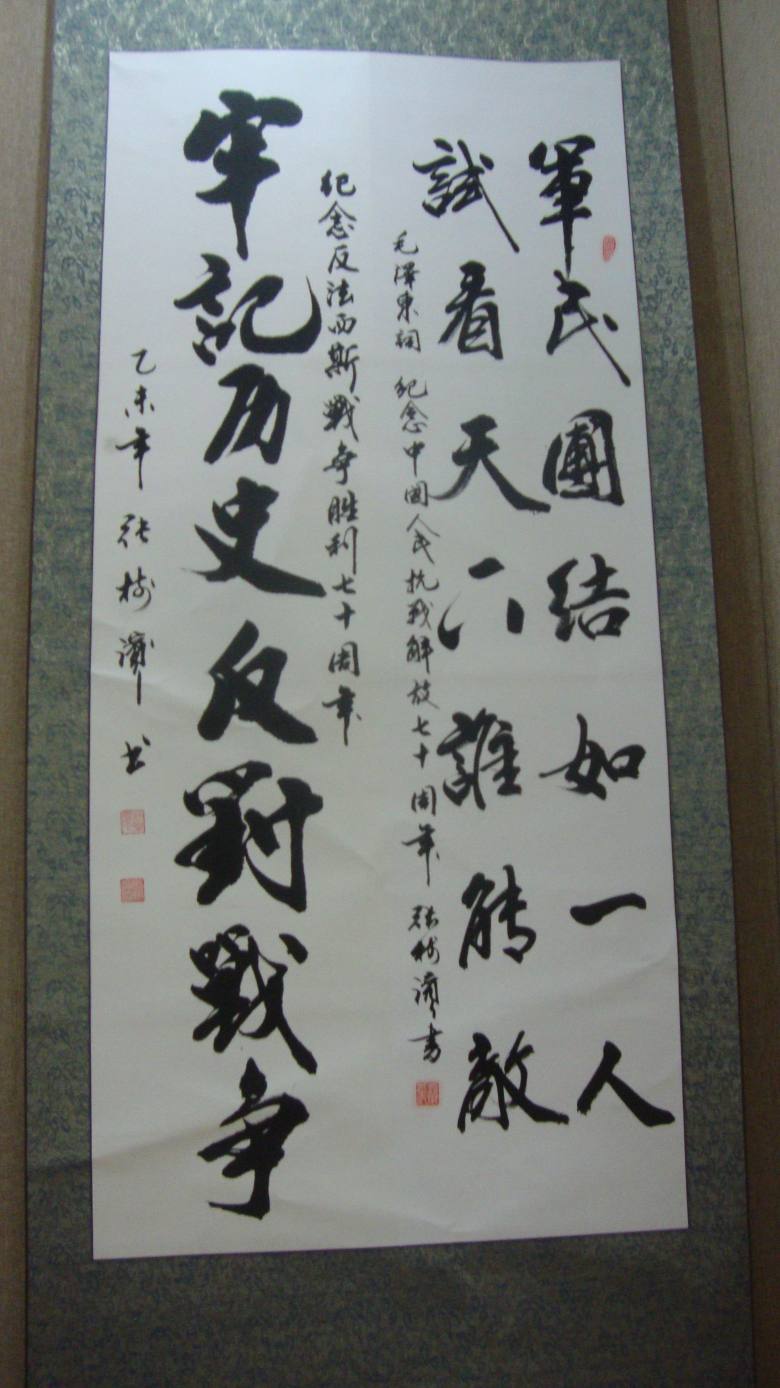 軍民團结如一人
試看天下誰能敵
毛澤東詞 纪念中國人民抗戰解放七十周年 张樹濤書
纪念反法西斯戰爭胜利七十周年
牢記历史反對戰争
乙未年 张樹濤书